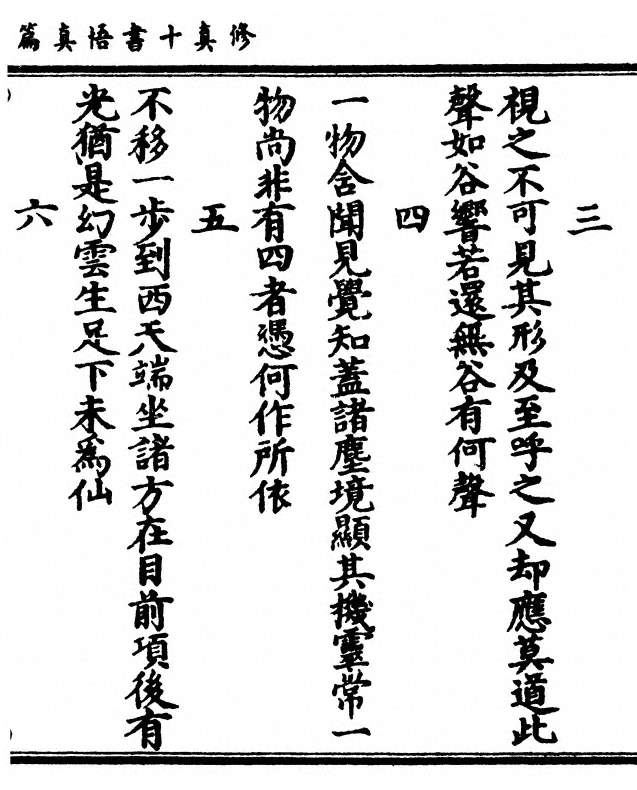 修真十書悟真篇
三
視之不可見其形及至呼之又却應莫道此
聲如谷響若還無谷有何聲
四
一物舍聞見覺知蓋諸塵境顯其機靈常一
物尚非有四者憑何作所依
五
不移一步到西天端坐諸方在目前項後有
光猶是幻雲生足下未爲仙
六